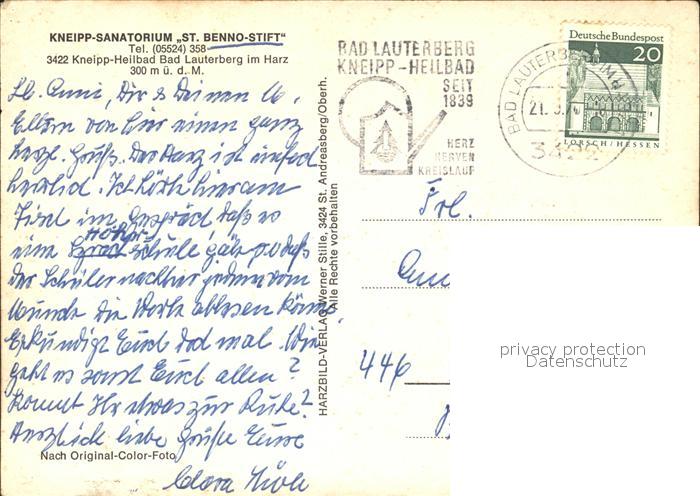 KNEIPP-SANATORIUM „ST. BENNO-STIFT"
Tel. (05524) 358
3422 Kneipp-Heilbad Bad Lauterberg im Harz
300 m ü. d. M.
Lb. Anni, Dir & Deinen lb.
Eltern von hier einen ganz
herzl. Gruß. Der Harz ist
herrlich. Ich hörte hier am
Tisch im Gespräch daß es
eine Hör schule gäbe daß
der Schüler nachher jedem vom
Munde die Worte ablesen könne
Erkundigt Euch doch mal. Wie
geht es sonst Euch allen?
Kommt Ihr etwas zur Ruhe?
Herzlich liebe Grüße Eure
Clara
Nach Original-Color-Foto
HARZBILD-VERLAG Werner Stille, 3424 St. Andreasberg/Oberh.
Alle Rechte vorbehalten
BAD LAUTERBERG
KNEIPP-HEILBAD
SEIT
1839
HERZ
NERVEN
KREISLAUF
BAD LAUTERBERG IM H
21.
3422
Deutsche Bundespost
20
LORSCH/HESSEN
Frl.
446
privacy protection
Datenschutz